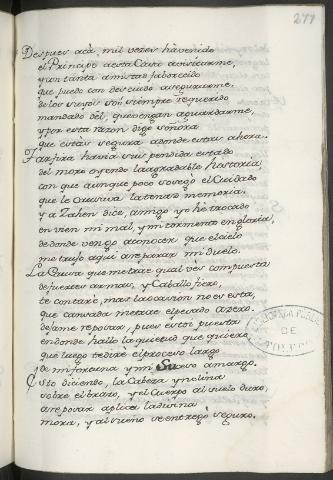 277
Despues acá, mil vezes hà venido
el Principe a esta Casa a visitarme,
y con tanta amistad faborecido
que puedo con descuido asegurarme,
de los suyos soy siempre requerido
mandado del, que vengan a guardarme,
y por esta razon digo señora
que estais segura adonde estais ahora.
Tarfira havia suspendida estado
del moro oyendo la agradable historia,
con que aunque poco sosegò el Cuidado
que le causava la tener memoria.
y a Zahen dice, amigo yo hè trocado
en bien mi mal, y mi tormento en gloria,
de donde vengo a conocer que el cielo
me trajo aqui a reparar mi duelo.
La Causa que me trae qual veis compuesta
de fuertes armas, y Caballo fiero,
te contarè, mas la ocasion no es esta,
que cansada me trae el pesado azero.
dejame reposar, pues estoi puesta
en donde hallo la quietud que quiero
que luego te dirè el proceso largo
de mi fortuna y mi Suceso amargo.
Esto diciendo, la Cabeza ynclina
sobre el brazo, y el Cuerpo al suelo duro,
a reposar aplica la divina
mora, y al sueño se entregò seguro.
DE
TOLEDO